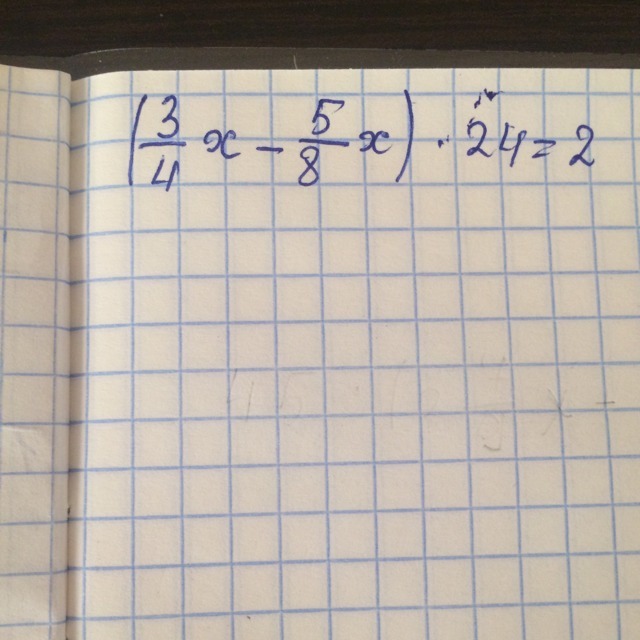 (3/4 x − 5/8 x) · 24 = 2